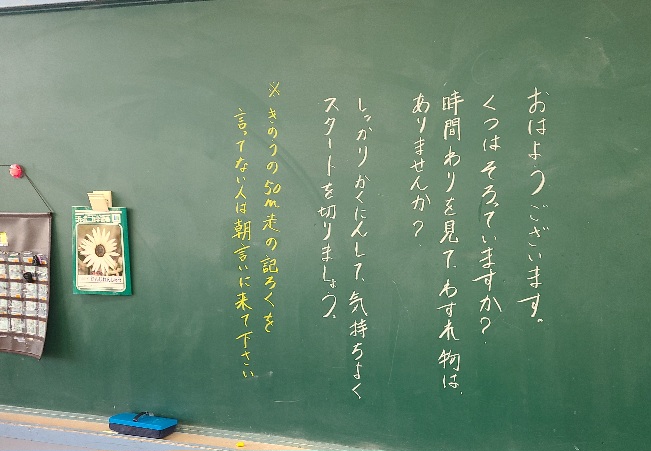 おはようございます。
くつはそろっていますか？
時間わりを見て、わすれ物は、
ありませんか？
しっかりかくにんして、気持ちよく
スタートを切りましょう。
※きのうの50m走の記ろくを
言ってない人は朝言いに来て下さい